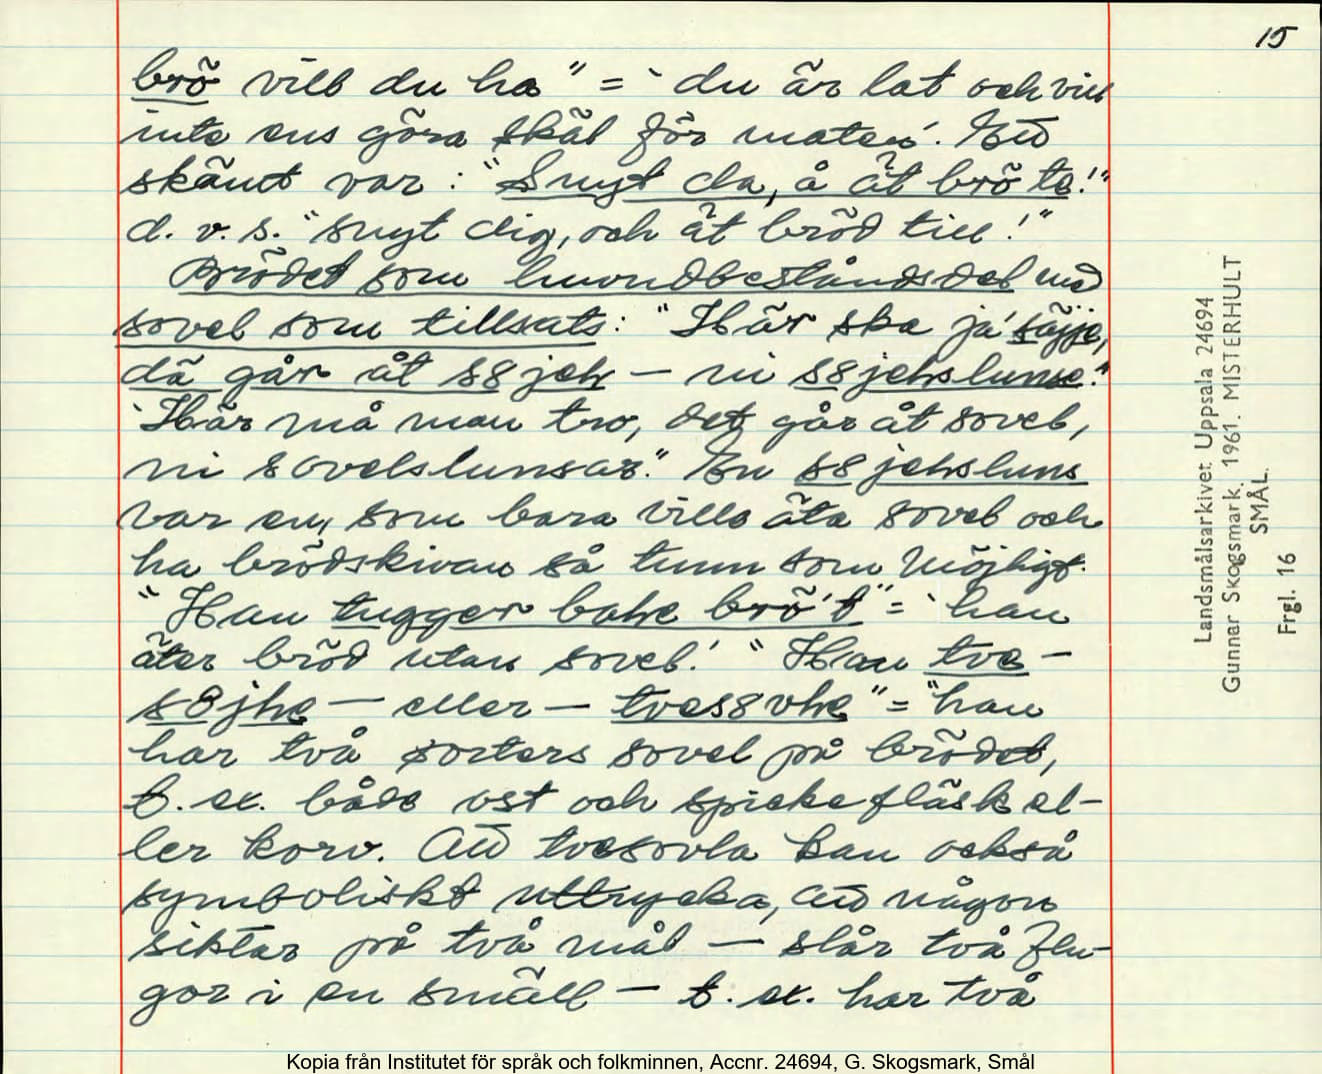 15
brö vill du ha" = `du är lat och vill
inte ens göra skäl för maten´. Ett
skämt var: "Snyt da, å ät brö te!"
d. v. s. "snyt dig, och ät bröd till!"
Brödet som huvudbeståndsdel med
sovel som tillsats: "Här ska ja' säjje,
dä går åt s8jel — ni s8jelslunse."
`Här må man tro, det går åt sovel,
ni sovelslunsar." En s8jelsluns
var en, som bara ville äta sovel och
ha brödskivan så tunn som möjligt.
"Han tugger bahe brö't" = `han
äter bröd utan sovel.´ "Han tve-
s8jhe — eller — tves8vhe" = "han
har två sorters sovel på brödet,
t. ex. både ost och spickefläsk el-
ler korv. Att tvesovla kan också
symboliskt uttrycka, att någon
siktar på två mål — slår två flu-
gor i en smäll — t. ex. har två
Landsmålsarkivet Uppsala 24694
Gunnar Skogsmark. 1961. MISTERHULT
SMÅL.
Frgl. 16
Kopia från Institutet för språk och folkminnen, Accnr. 24694, G. Skogsmark, Smål